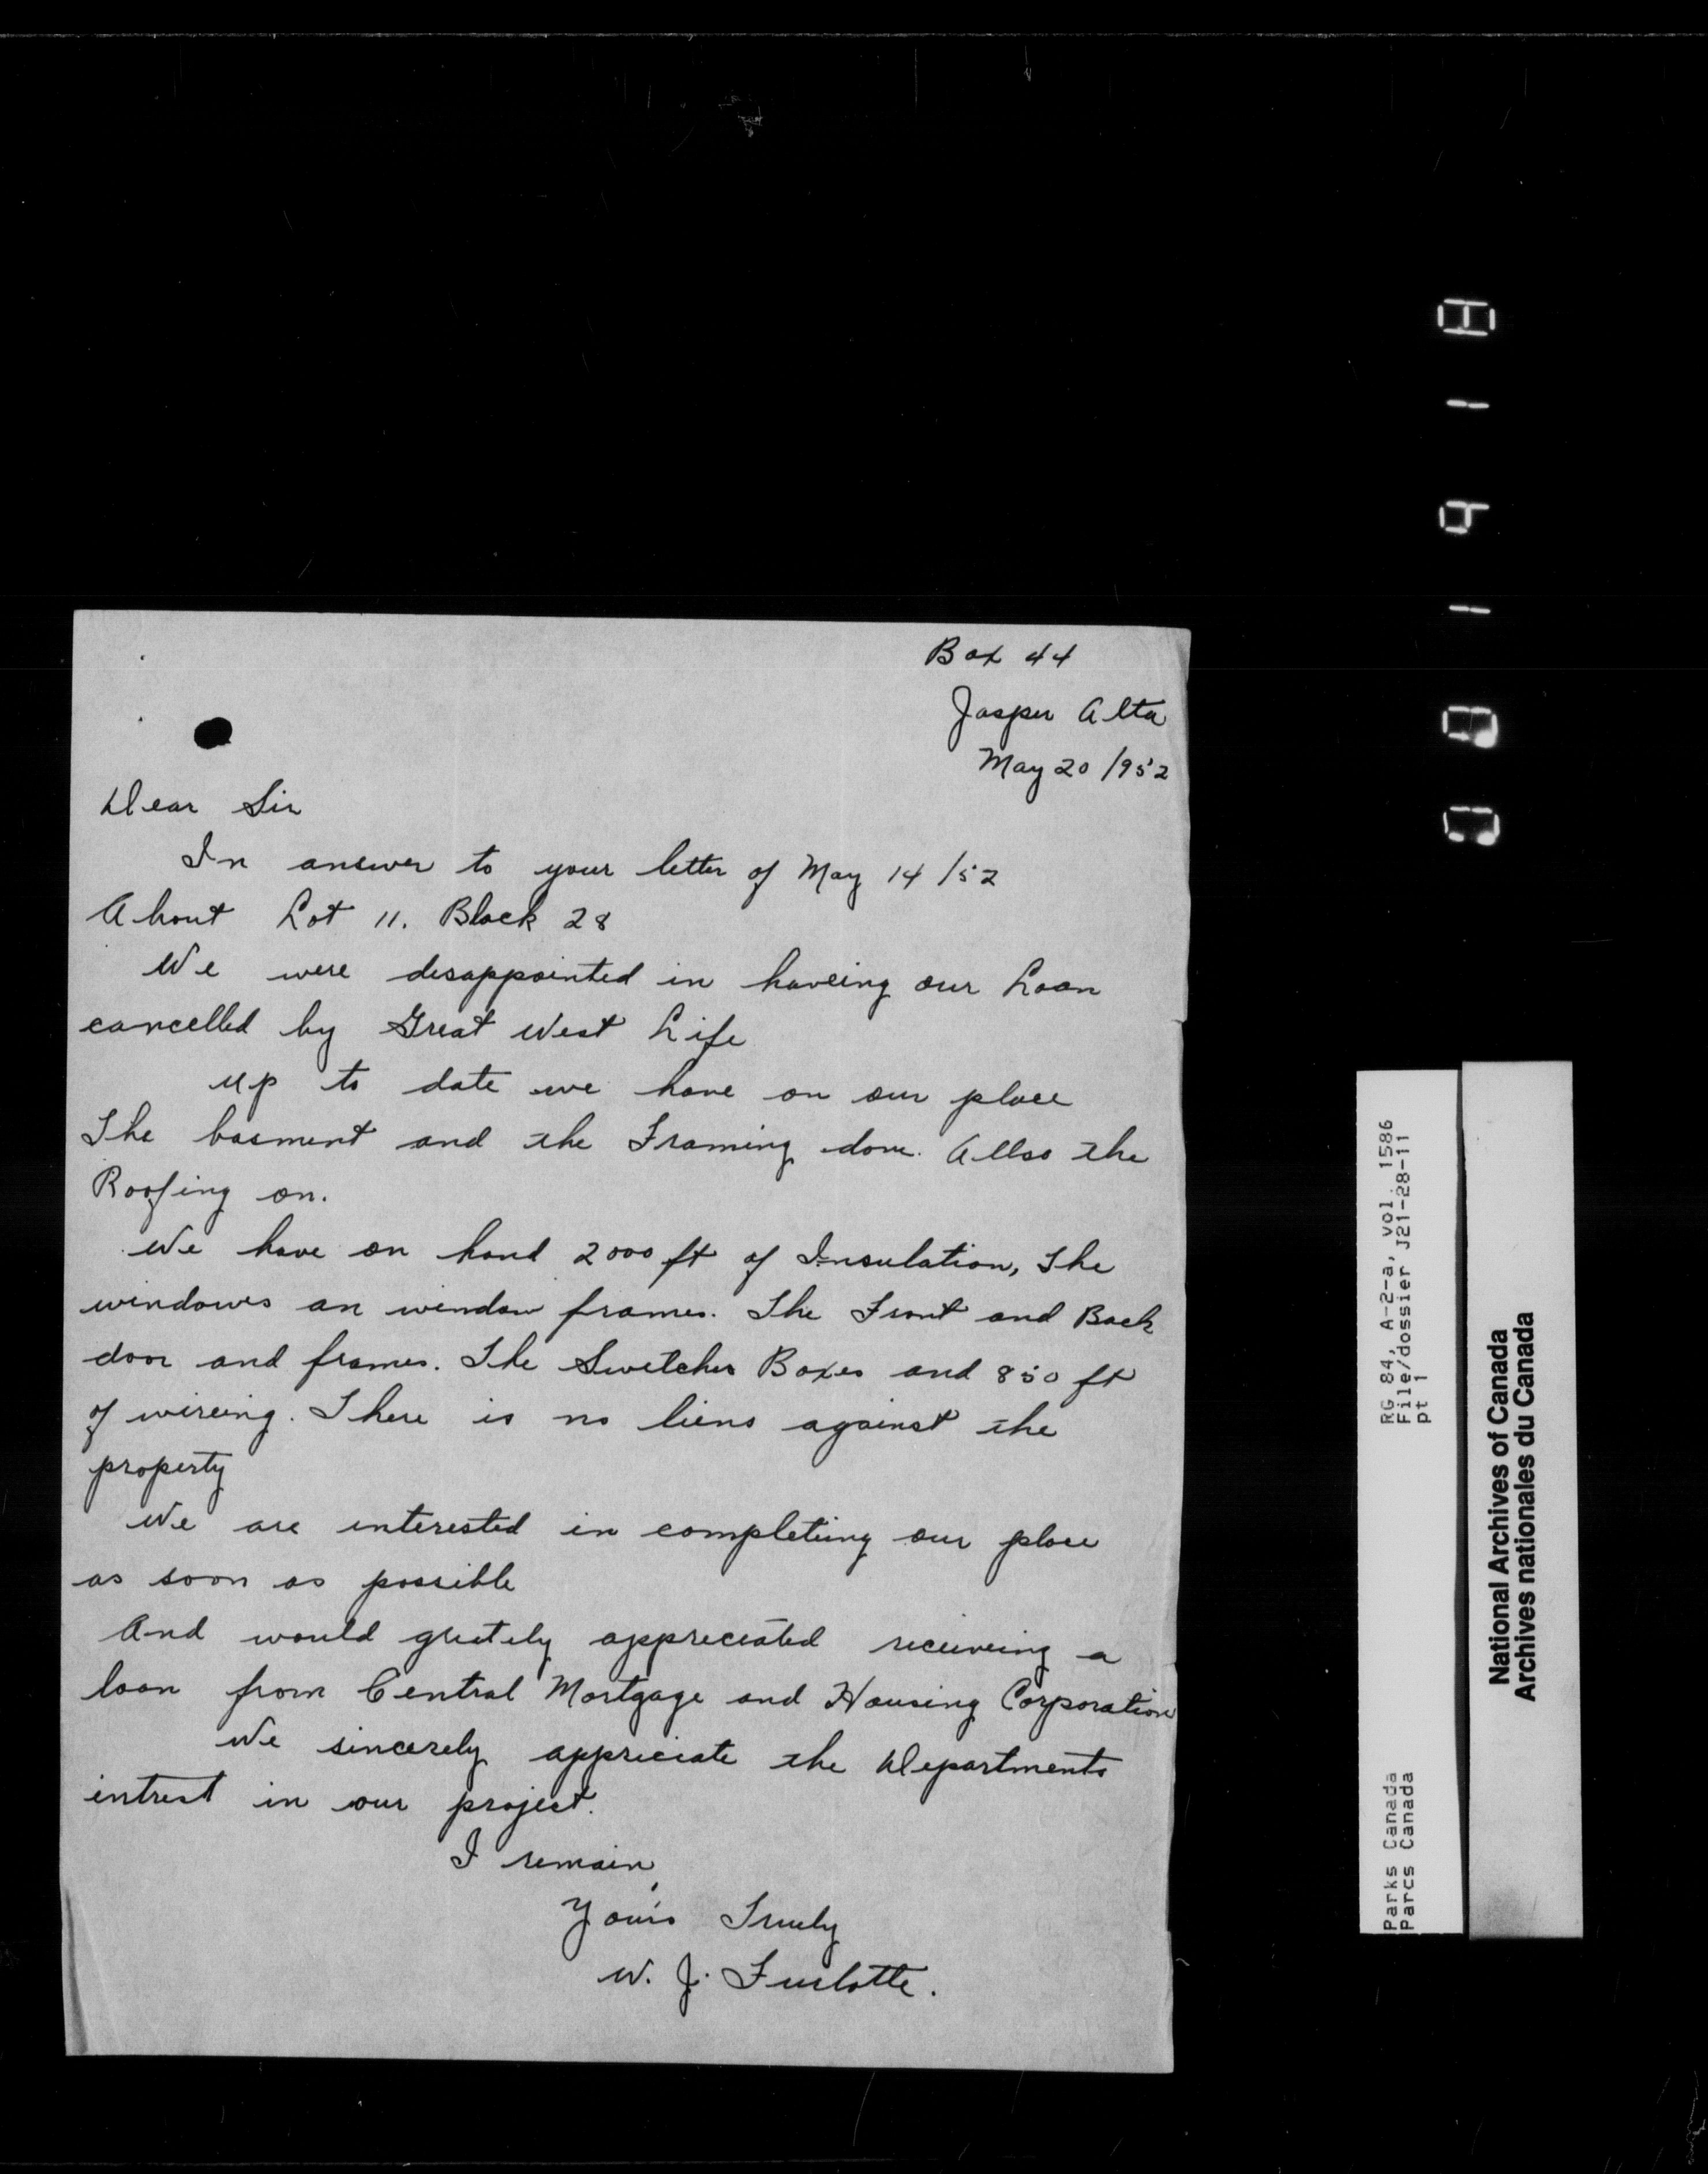 Box 44
Jasper Alta
May 20/952
Dear Sir
In answer to your letter of May 14/52
About Lot 11. Block 28
We were desappointed in haveing our Loan
cancelled by Great West Life
up to date we have on our place
The basment and the Framing done. Allso the
Roofing on.
We have on hand 2000 ft of Insulation, The
windows an window frames. The Front and Back
door and frames. The Switches Boxes and 850 ft
of wireing. There is no liens against the
property
We are interested in completeing our place
as soon as possible
And would gretely appreciated receiveing a
loan from Central Mortgage and Housing Corporation
We sincerely appreciate the Departments
intrest in our project.
I remain,
Yours Truely
W. J. Furlotte.
RG 84, A-2-a, vol. 1586
File/dossier J21-28-11
pt 1
Parks Canada
Parcs Canada
National Archives of Canada
Archives nationales du Canada